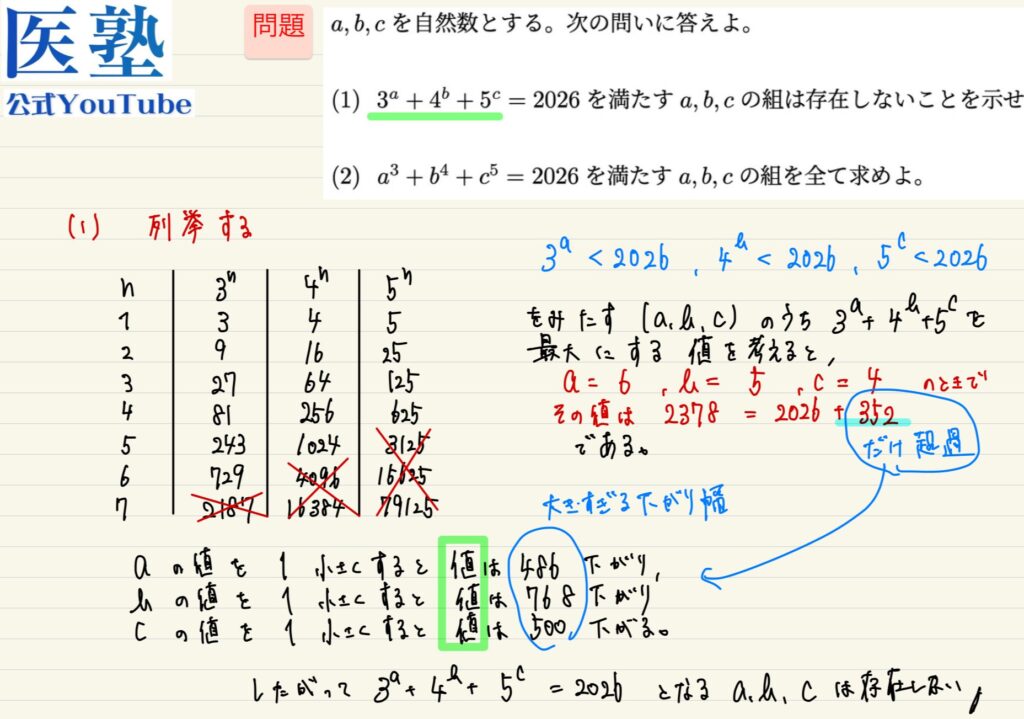 医塾
公式YouTube
問題
a, b, c を自然数とする。次の問いに答えよ。
(1) 3^a + 4^b + 5^c = 2026 を満たす a, b, c の組は存在しないことを示せ
(2) a^3 + b^4 + c^5 = 2026 を満たす a, b, c の組を全て求めよ。
(1) 列挙する
n 3^n 4^n 5^n
1 3 4 5
2 9 16 25
3 27 64 125
4 81 256 625
5 243 1024 3125
6 729 4096 15625
7 2187 16384 79125
3^a < 2026 , 4^b < 2026 , 5^c < 2026
をみたす (a, b, c) のうち 3^a + 4^b + 5^c を
最大にする 値を考えると,
a = 6 , b = 5 , c = 4 のときで
その値は 2378 = 2026 + 352
である。
だけ超過
大きすぎる下がり幅
a の値を 1 小さくすると 値は 486 下がり,
b の値を 1 小さくすると 値は 768 下がり
c の値を 1 小さくすると 値は 500, 下がる。
したがって 3^a + 4^b + 5^c = 2026 となる a, b, c は存在しない